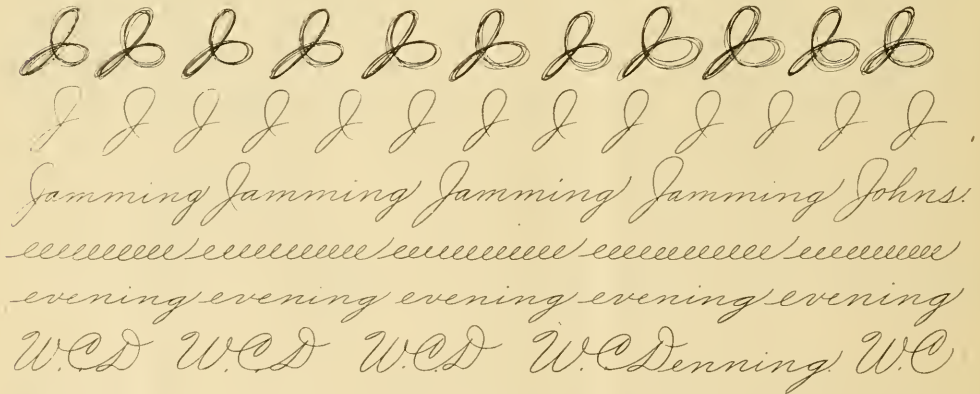 J J J J J J J J J J J
J J J J J J J J J J J J J
Jamming Jamming Jamming Jamming Johns.
eeeeeeeeeee eeeeeeeeeeee eeeeeeeeeeee eeeeeeeeeeee eeeeeeeeeee
evening evening evening evening evening
W.C.D W.C.D W.C.D W.C.Denning. W.C